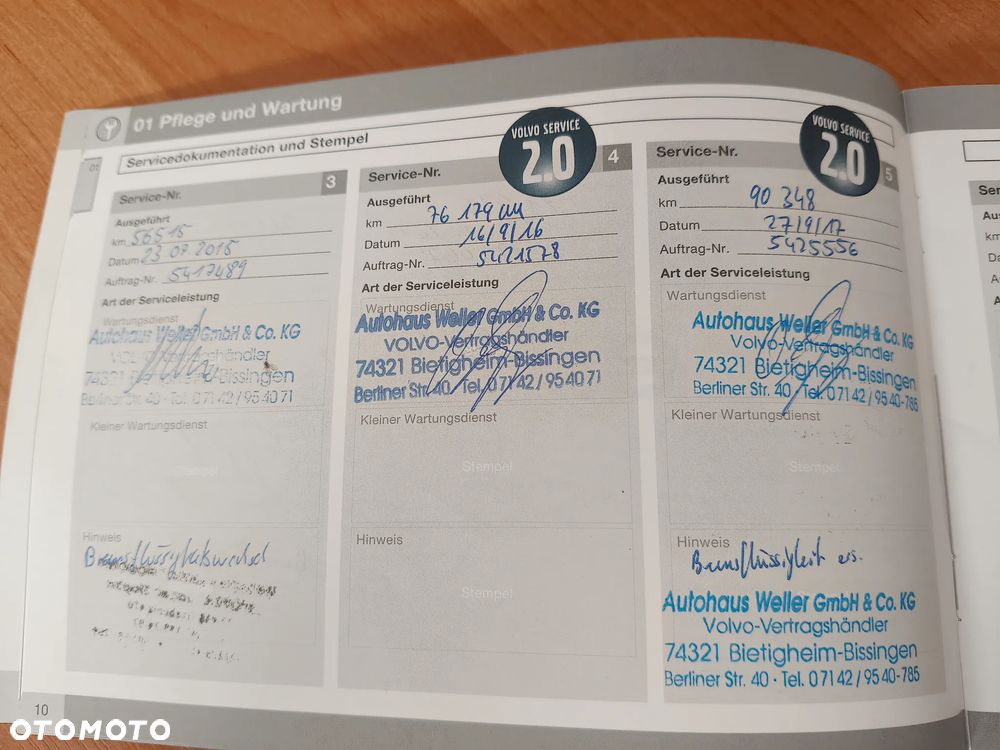 01 Pflege und Wartung
01
Servicedokumentation und Stempel
Service-Nr. 3
Ausgeführt
km 56515
Datum 23 07 2015
Auftrag-Nr. 5417489
Art der Serviceleistung
Wartungsdienst
Autohaus Weller GmbH & Co. KG
VOLVO-Vertragshändler
74321 Bietigheim-Bissingen
Berliner Str. 40 · Tel. 0 71 42 / 95 40 71
Kleiner Wartungsdienst
Stempel
Hinweis
Bremsflüssigkeitswechsel
Service-Nr. 4
VOLVO SERVICE
2.0
Ausgeführt
km 76 179 km
Datum 16/9/16
Auftrag-Nr. 5421578
Art der Serviceleistung
Wartungsdienst
Autohaus Weller GmbH & Co. KG
VOLVO-Vertragshändler
74321 Bietigheim-Bissingen
Berliner Str. 40 Tel. 0 71 42 / 95 40 71
Kleiner Wartungsdienst
Stempel
Hinweis
Stempel
Service-Nr. 5
VOLVO SERVICE
2.0
Ausgeführt
km 90 348
Datum 27/9/17
Auftrag-Nr. 5425556
Art der Serviceleistung
Wartungsdienst
Autohaus Weller GmbH & Co. KG
Volvo-Vertragshändler
74321 Bietigheim-Bissingen
Berliner Str. 40 · Tel. 0 71 42 / 95 40-785
Kleiner Wartungsdienst
Stempel
Hinweis
Bremsflüssigkeit ers.
Autohaus Weller GmbH & Co. KG
Volvo-Vertragshändler
74321 Bietigheim-Bissingen
Berliner Str. 40 · Tel. 0 71 42 / 95 40-785
10
OTOMOTO